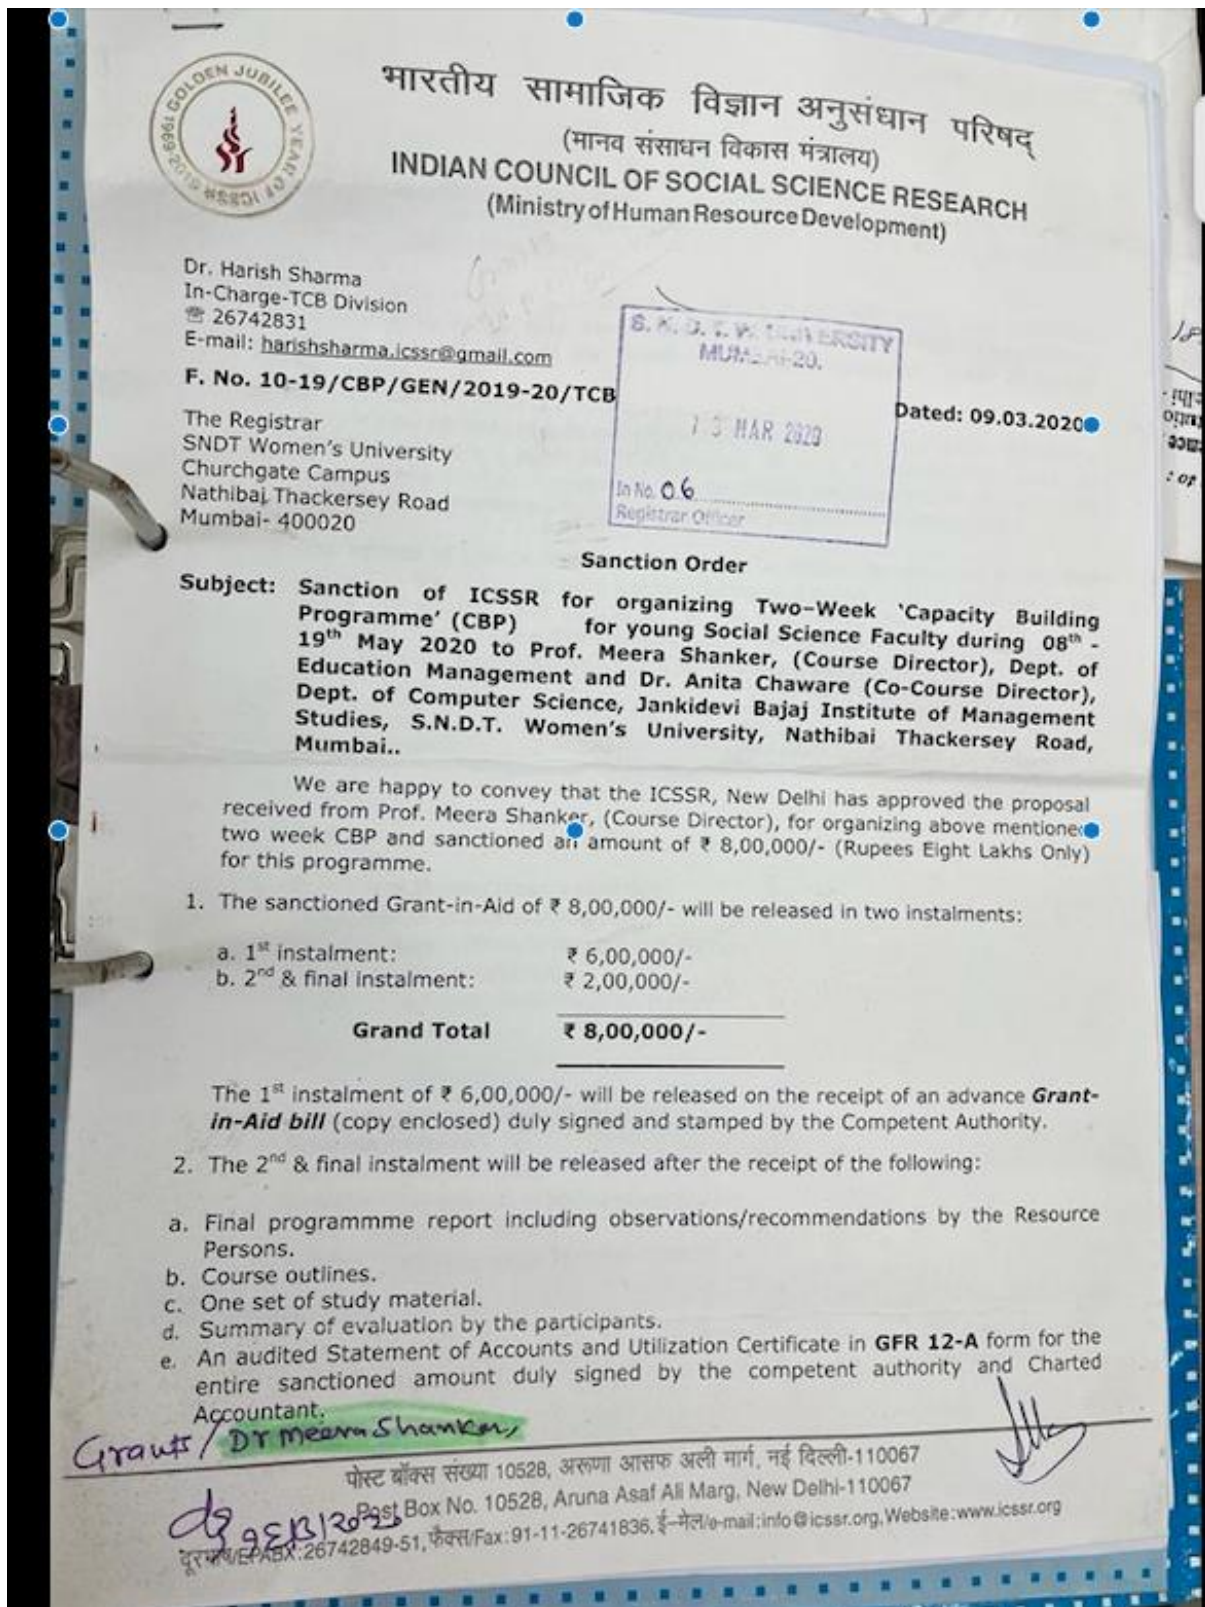 GOLDEN JUBILEE YEAR OF ICSSR
भारतीय सामाजिक विज्ञान अनुसंधान परिषद्
(मानव संसाधन विकास मंत्रालय)
INDIAN COUNCIL OF SOCIAL SCIENCE RESEARCH
(Ministry of Human Resource Development)
Dr. Harish Sharma
In-Charge-TCB Division
☏ 26742831
E-mail: harishsharma.icssr@gmail.com
S. N. D. T. W. UNIVERSITY
MUMBAI-20.
F. No. 10-19/CBP/GEN/2019-20/TCB
Dated: 09.03.2020
MAR 2020
In No. 06
Registrar Officer
The Registrar
SNDT Women's University
Churchgate Campus
Nathibai Thackersey Road
Mumbai- 400020
Sanction Order
Subject: Sanction of ICSSR for organizing Two-Week 'Capacity Building
Programme' (CBP) for young Social Science Faculty during 08th -
19th May 2020 to Prof. Meera Shanker, (Course Director), Dept. of
Education Management and Dr. Anita Chaware (Co-Course Director),
Dept. of Computer Science, Jankidevi Bajaj Institute of Management
Studies, S.N.D.T. Women's University, Nathibai Thackersey Road,
Mumbai..
We are happy to convey that the ICSSR, New Delhi has approved the proposal
received from Prof. Meera Shanker, (Course Director), for organizing above mentioned
two week CBP and sanctioned an amount of ₹ 8,00,000/- (Rupees Eight Lakhs Only)
for this programme.
1. The sanctioned Grant-in-Aid of ₹ 8,00,000/- will be released in two instalments:
a. 1st instalment: ₹ 6,00,000/-
b. 2nd & final instalment: ₹ 2,00,000/-
Grand Total ₹ 8,00,000/-
The 1st instalment of ₹ 6,00,000/- will be released on the receipt of an advance Grant-
in-Aid bill (copy enclosed) duly signed and stamped by the Competent Authority.
2. The 2nd & final instalment will be released after the receipt of the following:
a. Final programmme report including observations/recommendations by the Resource
Persons.
b. Course outlines.
c. One set of study material.
d. Summary of evaluation by the participants.
e. An audited Statement of Accounts and Utilization Certificate in GFR 12-A form for the
entire sanctioned amount duly signed by the competent authority and Charted
Accountant.
Grants/ Dr Meera Shanker,
पोस्ट बॉक्स संख्या 10528, अरूणा आसफ अली मार्ग, नई दिल्ली-110067
Post Box No. 10528, Aruna Asaf Ali Marg, New Delhi-110067
दूरभाष/EPABX:26742849-51, फैक्स/Fax:91-11-26741836, ई-मेल/e-mail:info@icssr.org, Website:www.icssr.org